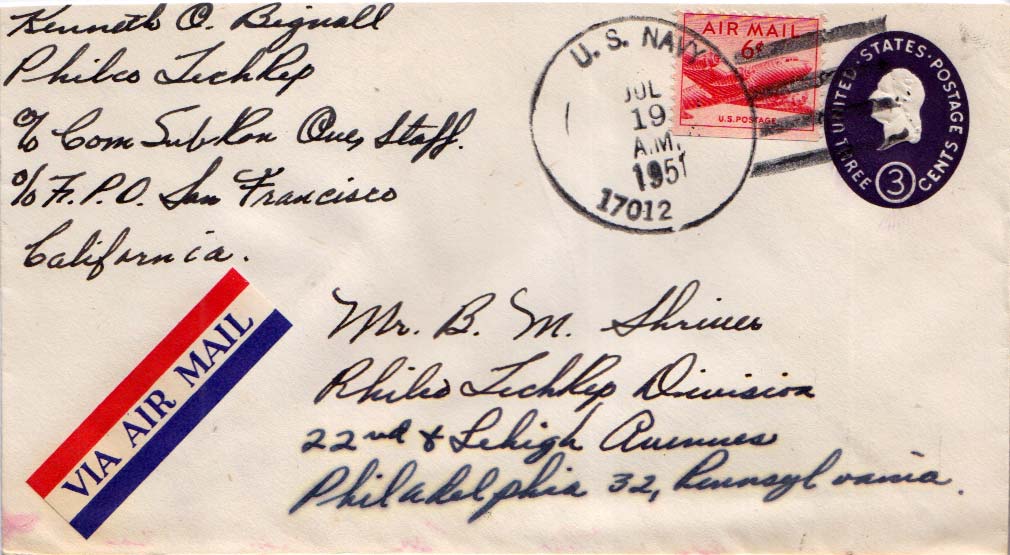 Kenneth O. Bignall
Philco TechRep
% Com Sub Ron One, Staff.
% F.P.O. San Francisco
California.
U. S. NAVY
JUL
19
A.M.
1951
17012
AIR MAIL
6¢
U.S. POSTAGE
UNITED · STATES · POSTAGE
THREE 3 CENTS
VIA AIR MAIL
Mr. B. M. Shriver
Philco TechRep Division
22nd & Lehigh Avenues
Philadelphia 32, Pennsylvania.